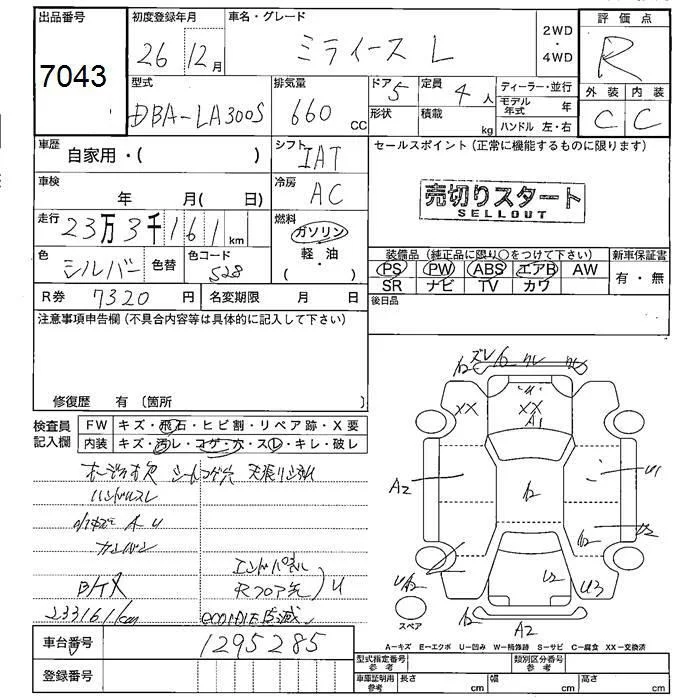 出品番号
初度登録年月
車名・グレード
評価点
7043
26 12月
ミライース L
2WD
・
4WD
R
型式
排気量
ドア 5
定員 4人
ディーラー・並行
外装 内装
DBA-LA300S
660 CC
形状
積載 kg
モデル年式 年
ハンドル 左・右
C C
車歴
自家用・( )
シフト
IAT
セールスポイント(正常に機能するものに限ります)
車検
年 月( 日)
冷房
AC
売切りスタート
SELLOUT
走行
23万3千161 km
燃料
ガソリン
軽・油
( )
色
シルバー
色替
色コード
S28
装備品(純正品に限り○をつけて下さい)
新車保証書
PS PW ABS エアB AW
有・無
SR ナビ TV カワ
R券 7320 円
名変期限 月 日
後日品
注意事項申告欄(不具合内容等は具体的に記入して下さい)
修復歴 有 〔箇所
検査員
記入欄
FW キズ・飛石・ヒビ割・リペア跡・X要
内装 キズ・汚レ・コゲ・穴・スレ・キレ・破レ
オーディオ欠 シートコゲ穴
ハンドルスレ
エンドパネル
Rフロア先
U
233161km
ズレ
XX
XX
A1
A2
U1
U2
U2
U3
A2
スペア
A-キズ E-エクボ U-凹み W-補修跡 S-サビ C-腐食 XX-交換済
車台番号
1295285
型式指定番号
参考
類別区分番号
参考
登録番号
車庫証明用
参考
長さ cm
幅 cm
高さ cm